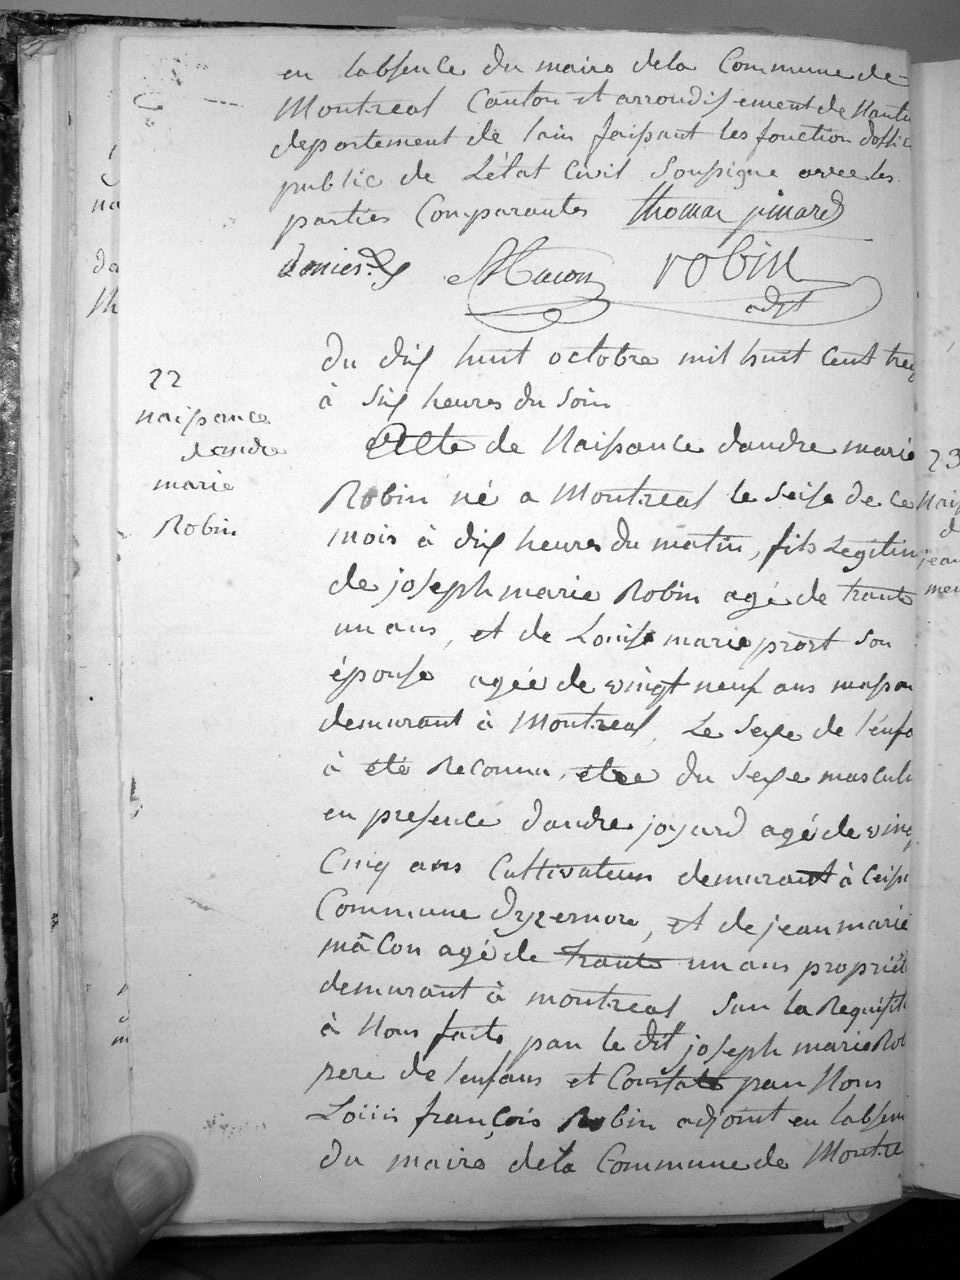 en labsence du maire dela Commune de
Montreal Canton et arrondissement de Nantu
departement de lain faissant les fonction doffic
public de L'état Civil Soussigne avec les
parties Comparantes thomas pinard
Macon robin
adjt
Du dix huit octobre mil huit cent trei
à six heures du soir
22
naissance
dandre
marie
Robin
Acte de Naissance dandre marie
Robin né a Montreal le seise de ce
mois à dix heures du matin, fils Legitim
de joseph marie Robin agé de trante
un ans, et de Louise marie prost son
épouse agée de vingt neuf ans masson
demurant à Montreal, Le sexe de l'enfa
à eté Reconnu etre du sexe mascul
en presence dandre joyard agé de ving
Cinq ans Cultivateur demurant à Ceiss
Commune dyzernore, et de jean marie
mâcon agé de trante un ans propriét
demurant à montreal sur la Requisit
à Nous faite par le dit joseph marie Rob
pere de lenfans et Constaté par Nous
Loüis françois Robin adjoint en labsen
du maire dela Commune de Montre
23
Nais
d
jean